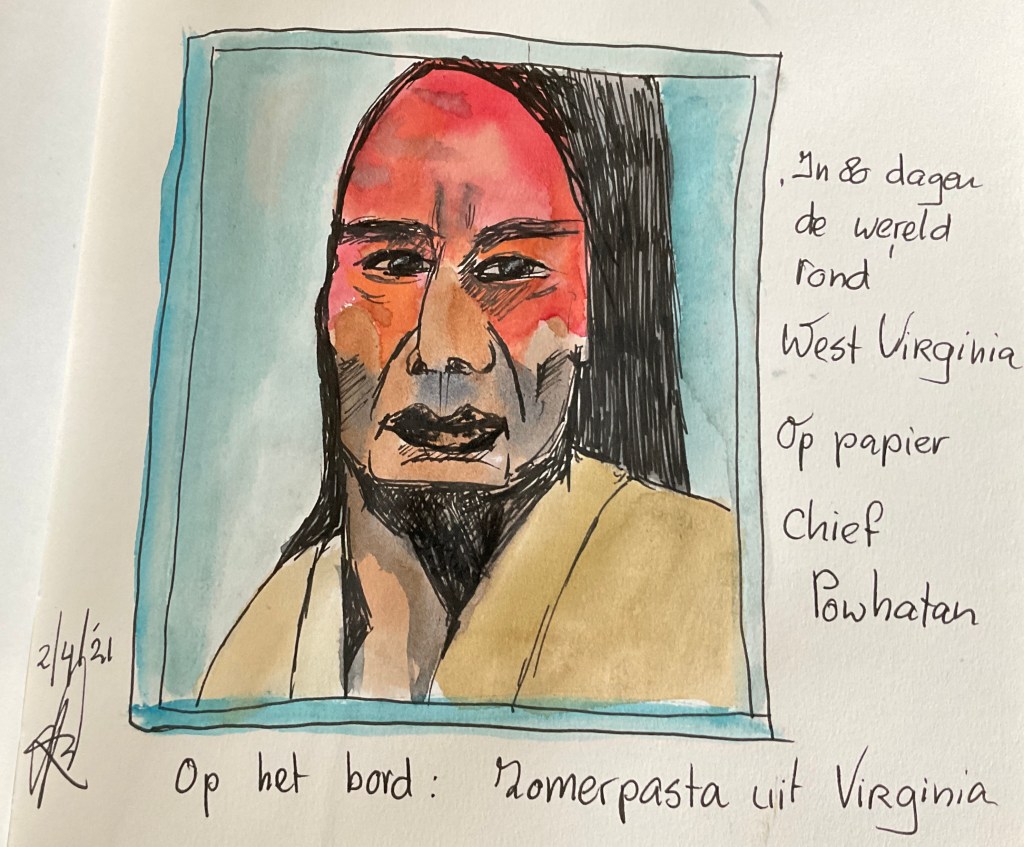 In 80 dagen
de wereld
rond
West Virginia
Op papier
Chief
Powhatan
2/4/'21
Op het bord: Zomerpasta uit Virginia